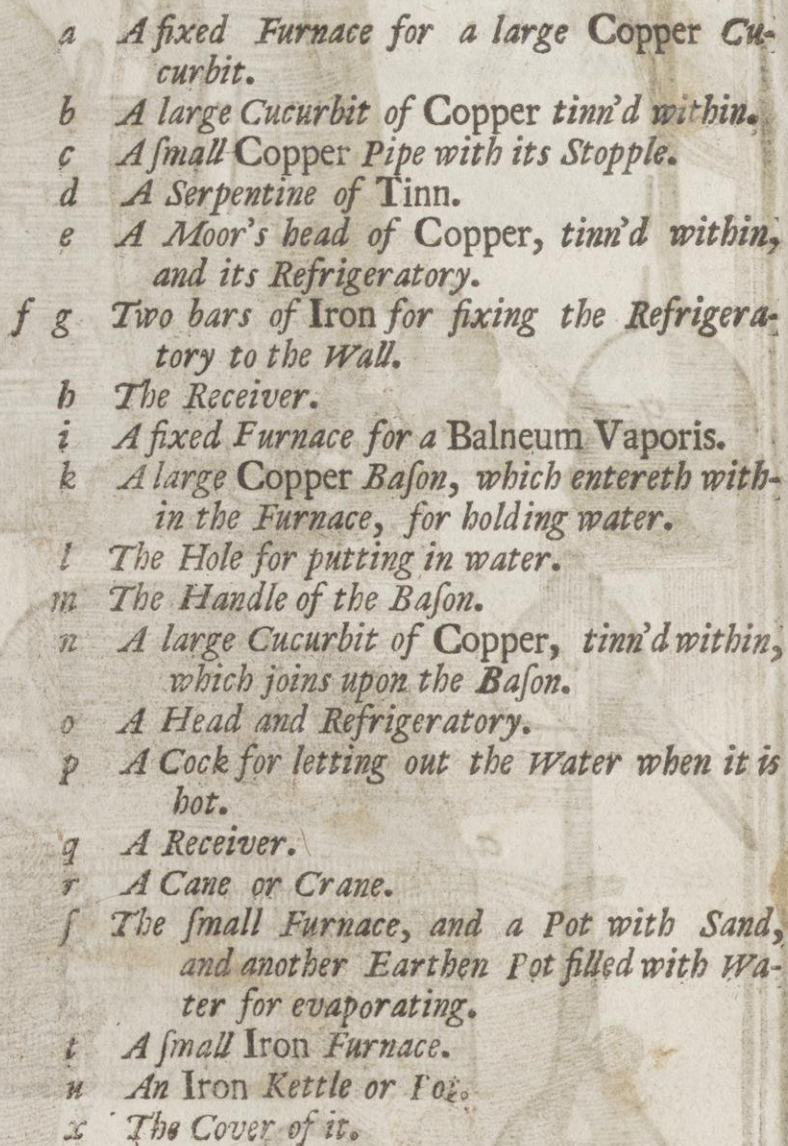 a A fixed Furnace for a large Copper Cu-
curbit.
b A large Cucurbit of Copper tinn'd within.
c A ſmall Copper Pipe with its Stopple.
d A Serpentine of Tinn.
e A Moor's head of Copper, tinn'd within,
and its Refrigeratory.
f g Two bars of Iron for fixing the Refrigera-
tory to the Wall.
h The Receiver.
i A fixed Furnace for a Balneum Vaporis.
k A large Copper Baſon, which entereth with-
in the Furnace, for holding water.
l The Hole for putting in water.
m The Handle of the Baſon.
n A large Cucurbit of Copper, tinn'd within,
which joins upon the Baſon.
o A Head and Refrigeratory.
p A Cock for letting out the Water when it is
hot.
q A Receiver.
r A Cane or Crane.
ſ The ſmall Furnace, and a Pot with Sand,
and another Earthen Pot filled with Wa-
ter for evaporating.
t A ſmall Iron Furnace.
u An Iron Kettle or Pot.
x The Cover of it.